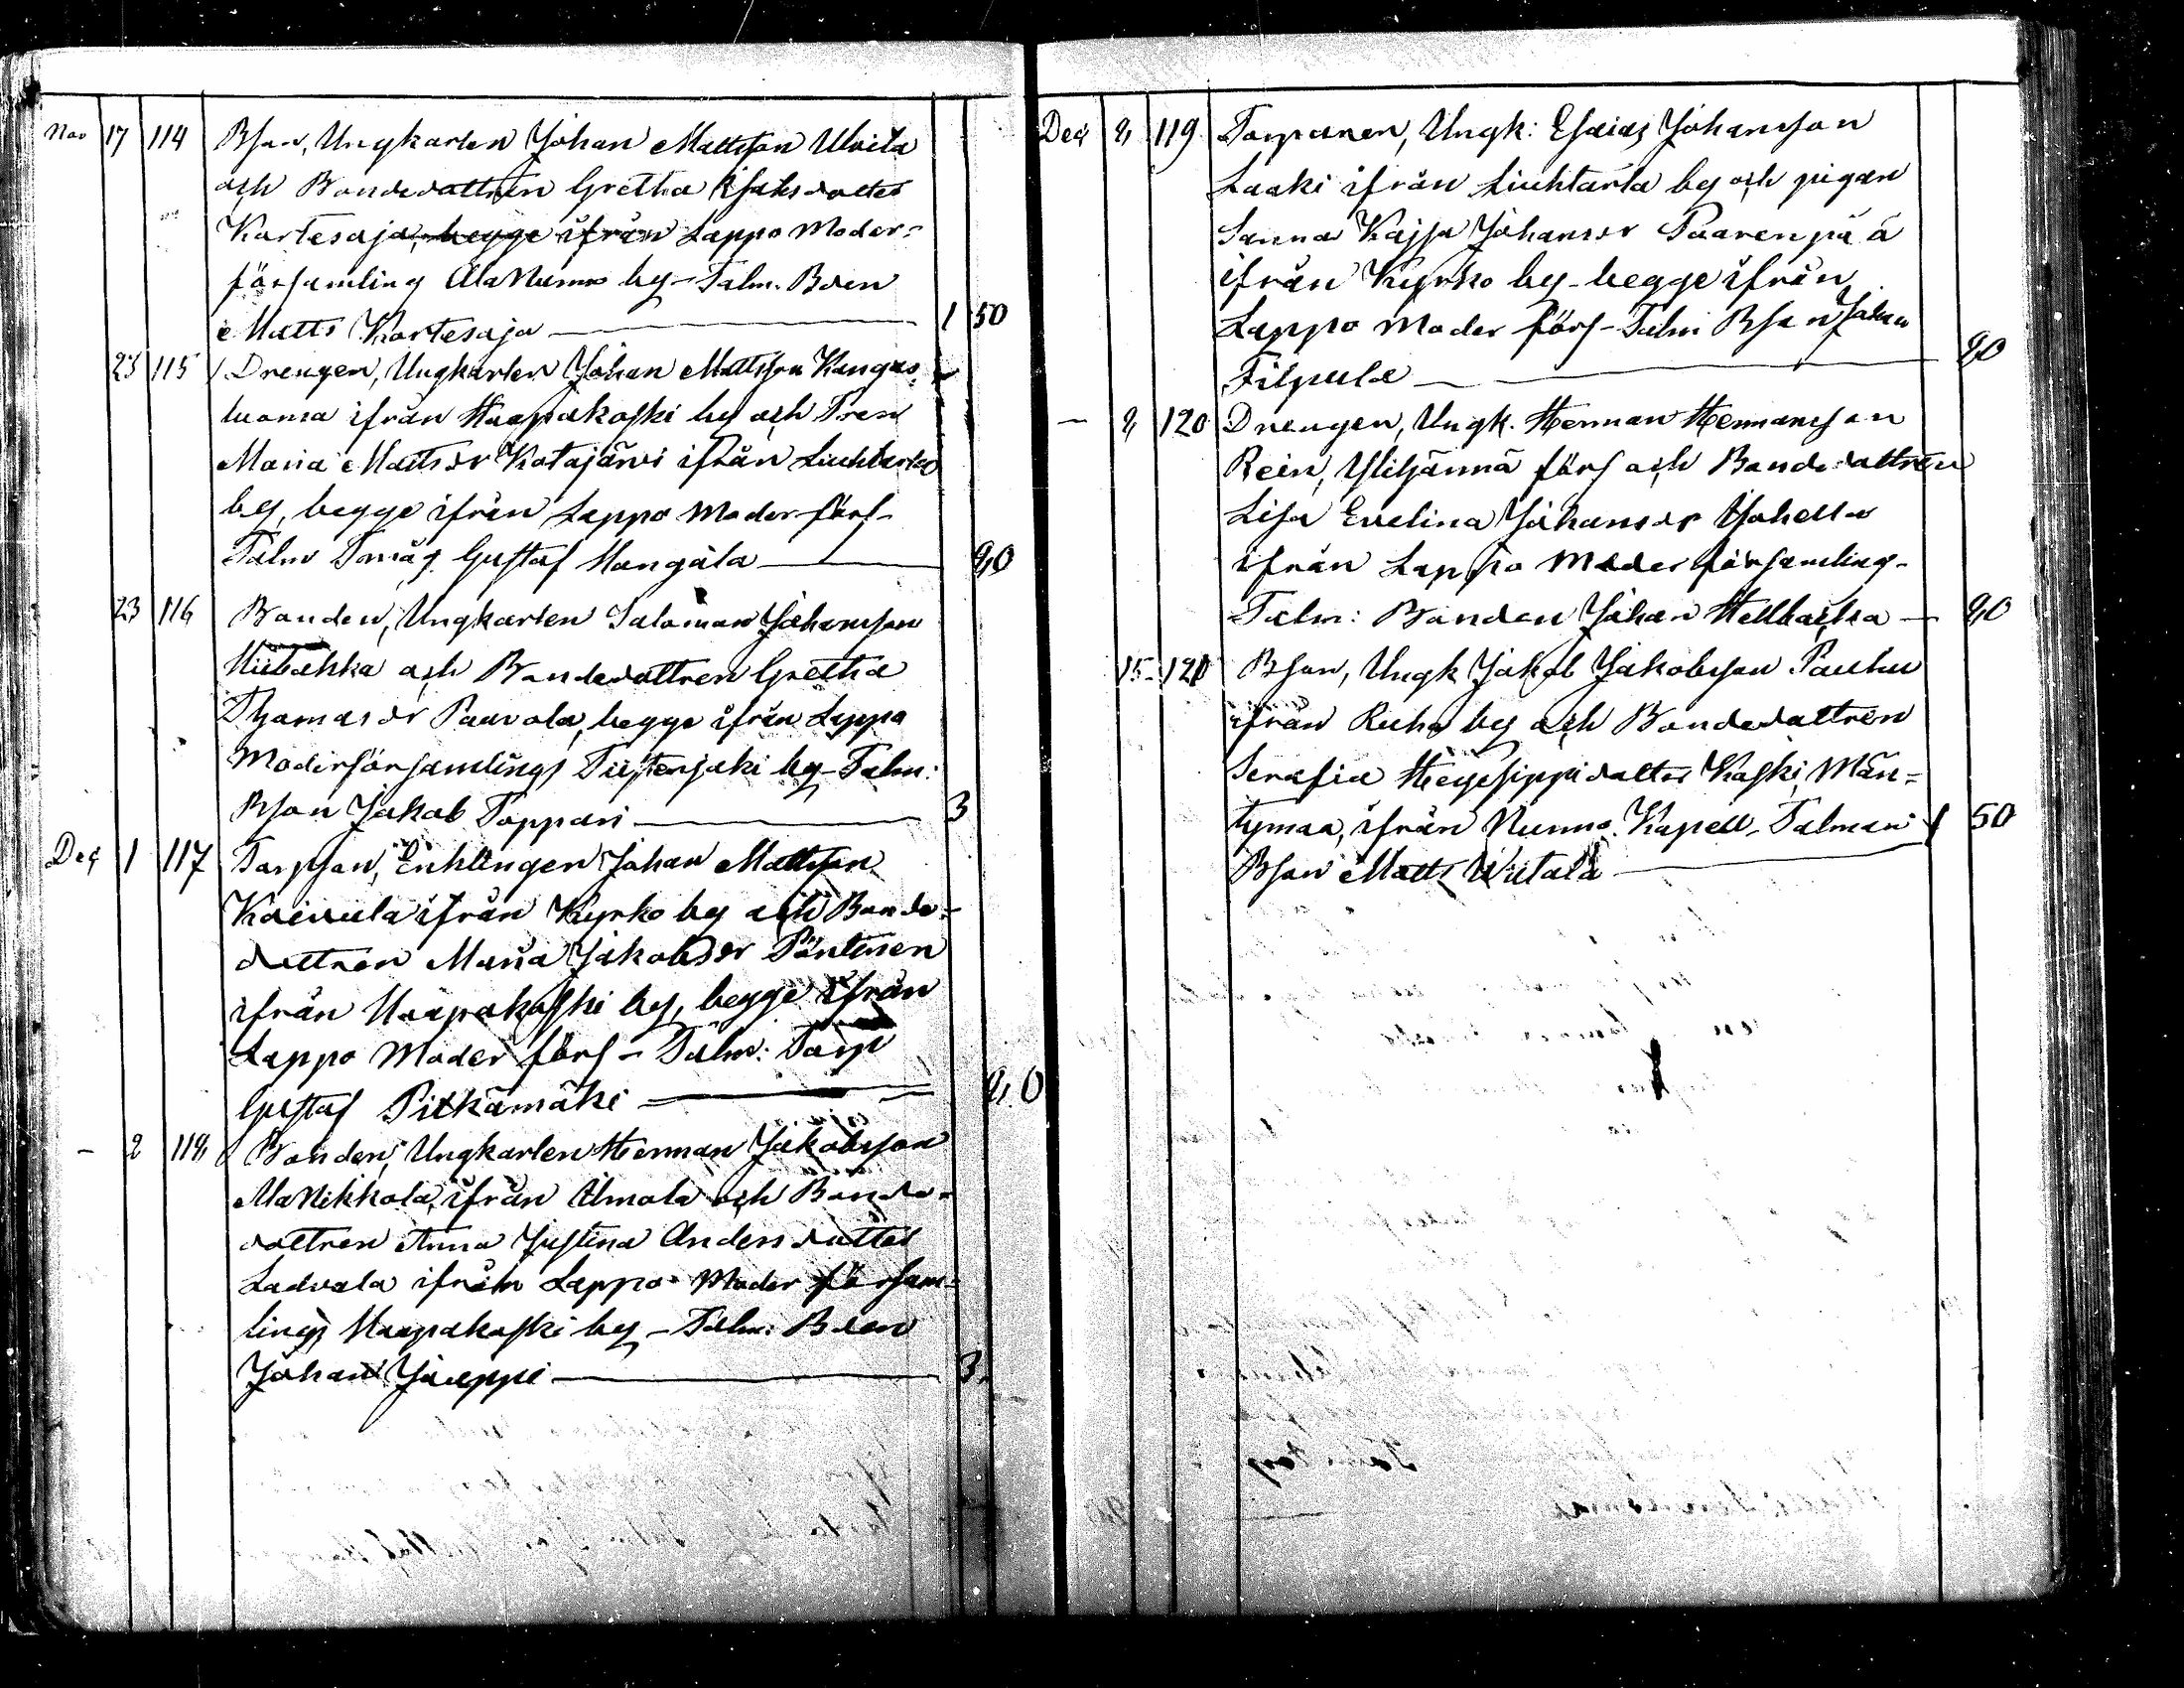 Nov 17 114 Bson, Ungkarlen Johan Mattsson Uloila
och Bondedottren Gretha Isaksdotter
Kortesoja, begge ifrån Lappo Moder-
församling Ala Nurmo by - Talm. Bden
Matts Kortesoja — 1 50
23 115 Drengen, Ungkarlen Johan Mattsson Kangas
luoma ifrån Haapakoski by och Tren
Maria Mattsdr Katajärvi ifrån Liuhtarla
by, begge ifrån Lappo Moder förs -
Talm Tmåg Gustaf Kangala — 80
23 116 Bonden, Ungkarlen Salomon Johansson
och Bondedottren Gretha
Thomasdr Paavola, begge ifrån Lappo
Moderförsamlings Tiistenjoki by - Talm:
Bson Jakob Toppari — 3
Dec 1 117 Torpson, Enklingen Johan Mattsson
Koivula ifrån Kyrko by och Bonde-
dottren Maria Jakobsdr Pöntinen
ifrån Haapakoski by, begge ifrån
Lappo Moder förs - Talm: Torp
Gustaf Pitkämäki — 80
- 2 118 Bonden, Ungkarlen Herman Jakobsson
Ala Nikkola, ifrån Ilmola och Bonde-
dottren Anna Justina Andersdotter
Ladvala ifrån Lappo Moder försam-
lings Haapakoski by - Talm: Bden
Johan Jaeppi — 3
Dec 8 119 Torparen, Ungk: Esaias Johansson
Laaki ifrån Liuhtarla by och pigan
Sanna Kajsa Johansdr Paavenpää
ifrån Kyrko by - begge ifrån
Lappo Moder förs - Talm Bson Johan
Filpula — 80
- 8 120 Drengen, Ungk. Herman Hermansson
Rein, Ylihärmä förs och Bondedottren
Lisa Evelina Johansdr Isohella
ifrån Lappo Moder församling -
Talm: Bonden Johan — 80
15 - 121 Bson, Ungk Jakob Jakobsson Pauhu
ifrån Ruha by och Bondedottren
Serafia Hegesippidotter Koski, Män-
tymaa, ifrån Nurmo Kapell - Talman 1 50
Bson Matts Wiitala —